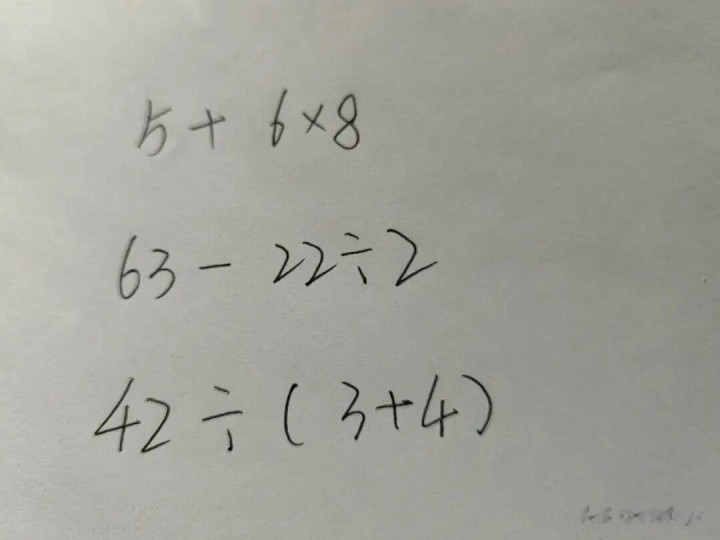 5 + 6×8
63 - 22÷2
42 ÷ ( 3+4 )